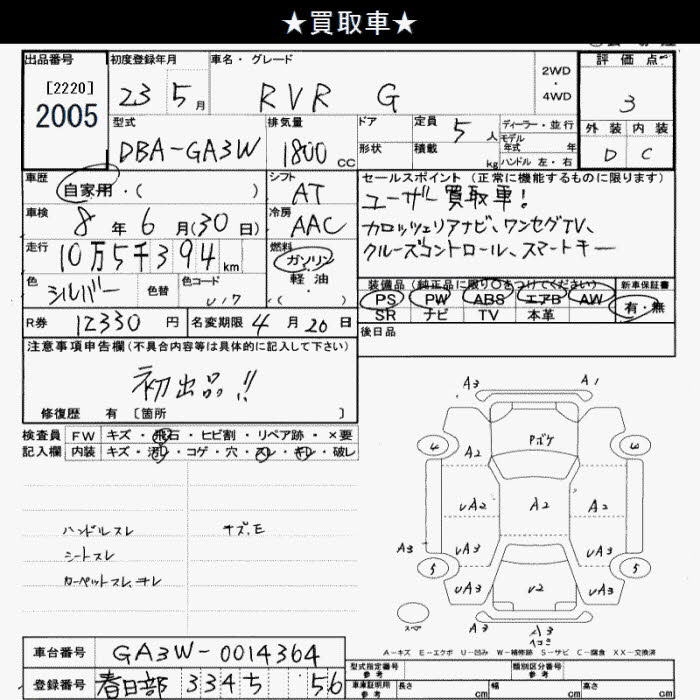 ★買取車★
出品番号 初度登録年月 車名・グレード 評価点
[2220] 2WD
2005 23 5月 RVR G ・ 3
4WD
型式 排気量 ドア 定員 5人 ディーラー・並行 外装 内装
DBA-GA3W 1800cc 形状 積載 kg モデル年式 年 D C
ハンドル 左・右
車歴 シフト セールスポイント (正常に機能するものに限ります)
自家用・( ) AT ユーザー買取車!
車検 8年6月(30日) 冷房 AAC カロッツェリアナビ、ワンセグTV、
走行 10万5千394km 燃料 ガソリン クルーズコントロール、スマートキー
・
色 シルバー 色替 色コード U17 軽油 装備品 (純正品に限り○をつけてください) 新車保証書
( ) PS PW ABS エアB AW 有・無
R券 12330円 名変期限 4月20日 SR ナビ TV 本革
注意事項申告欄(不具合内容等は具体的に記入して下さい) 後日品
初出品!!
修復歴 有 [箇所 ]
検査員 FW キズ・飛石・ヒビ割・リペア跡・×要
記入欄 内装 キズ・汚レ・コゲ・穴・スレ・キレ・破レ
ハンドルスレ キズ.E
シートスレ
カーペットスレ、キレ
A3 A1
4 Pボケ 3
A2
UA2 A2 A2
A3 UA3 UA3
5 5
UA3 U2 UA3
スペア
A3 A3
A-キズ E-エクボ U-凹み W-補修跡 S-サビ C-腐食 XX-交換済
車台番号 GA3W-0014364
登録番号 春日部 334 ち 56
型式指定番号 参考 類別区分番号 参考
車庫証明用 参考 長さ cm 幅 cm 高さ cm